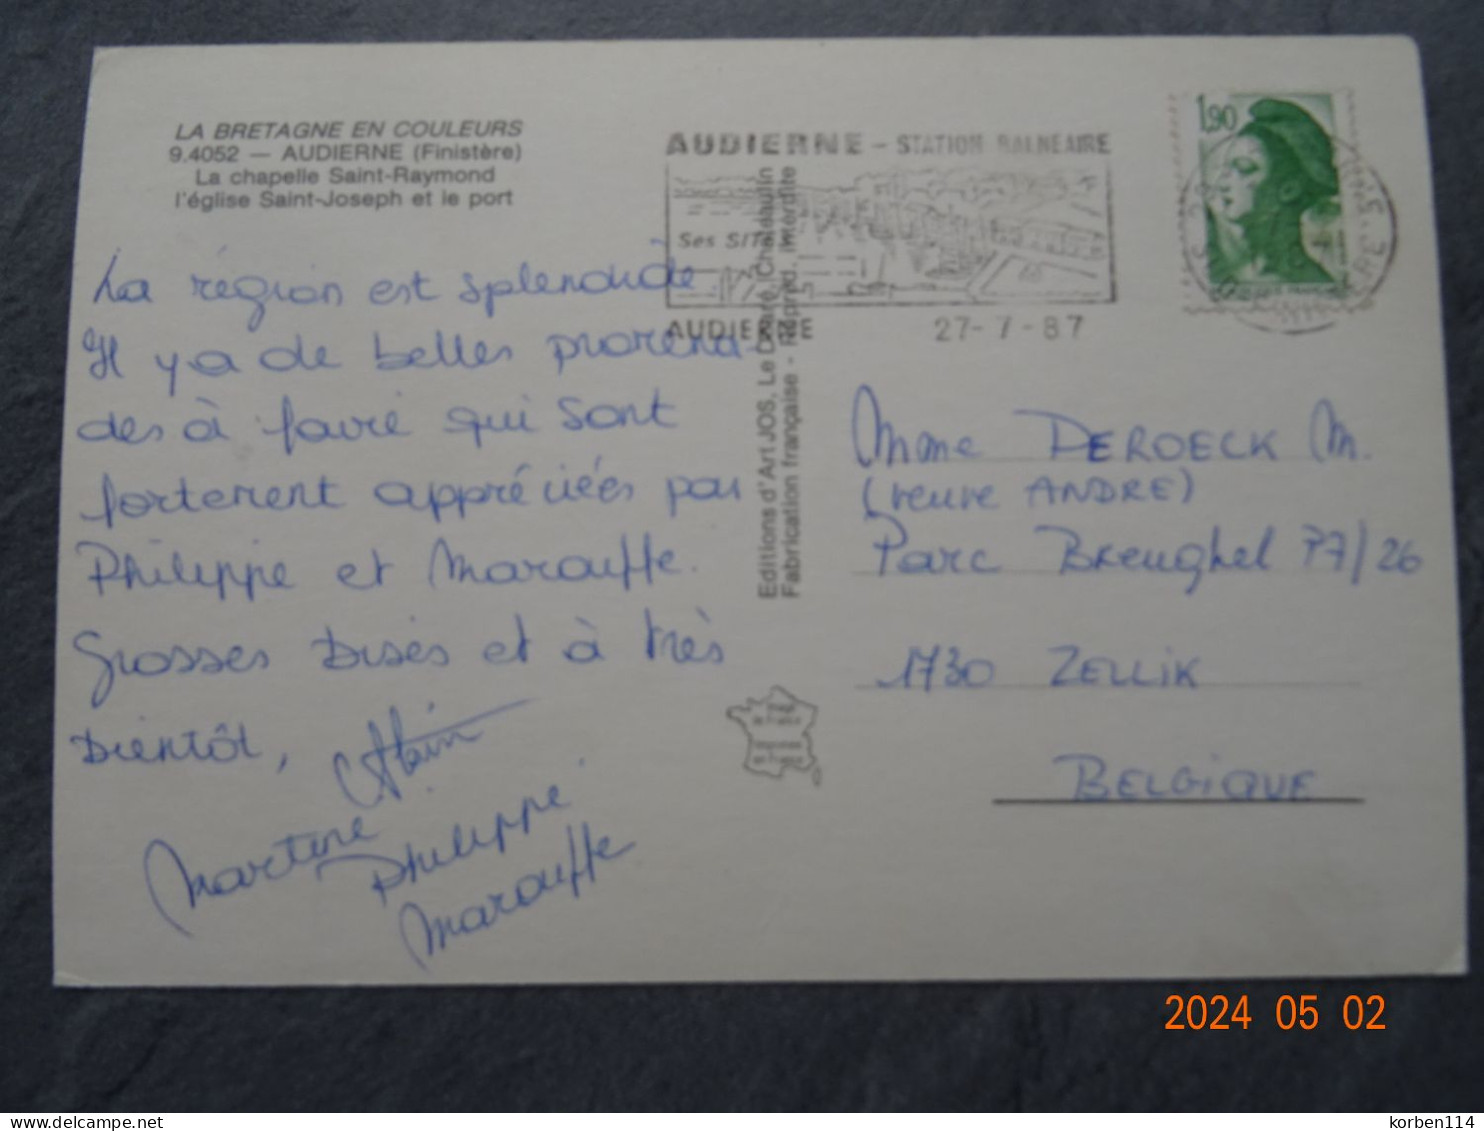 LA BRETAGNE EN COULEURS
9.4052 — AUDIERNE (Finistère)
La chapelle Saint-Raymond
l'église Saint-Joseph et le port
AUDIERNE - STATION BALNEAIRE
Ses SIT
AUDIERNE
27-7-87
1,90
La région est splendide
Il y a de belles promena-
des à faire qui sont
fortement appréciées par
Philippe et Marouffe.
Grosses Bises et à très
Bientôt,
Alain
Martine
Philippe
Marouffe
Editions d'Art JOS, Le Doaré, Châteaulin
Fabrication française - Reprod. interdite
Mme DEROECK M.
(veuve ANDRE)
Parc Breughel 77/26
1730 ZELLIK
BELGIQUE
2024 05 02
delcampe.net
korben114